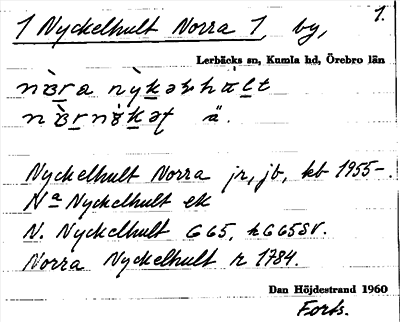 1 Nyckelhult Norra 1 by, 1.
Lerbäcks sn, Kumla hd, Örebro län
ä.
Nyckelhult Norra jr, jb, kb 1955-.
Na Nyckelhult ek
N. Nyckelhult G65, hG65SV.
Norra Nyckelhult r 1784.
Dan Höjdestrand 1960
Forts.